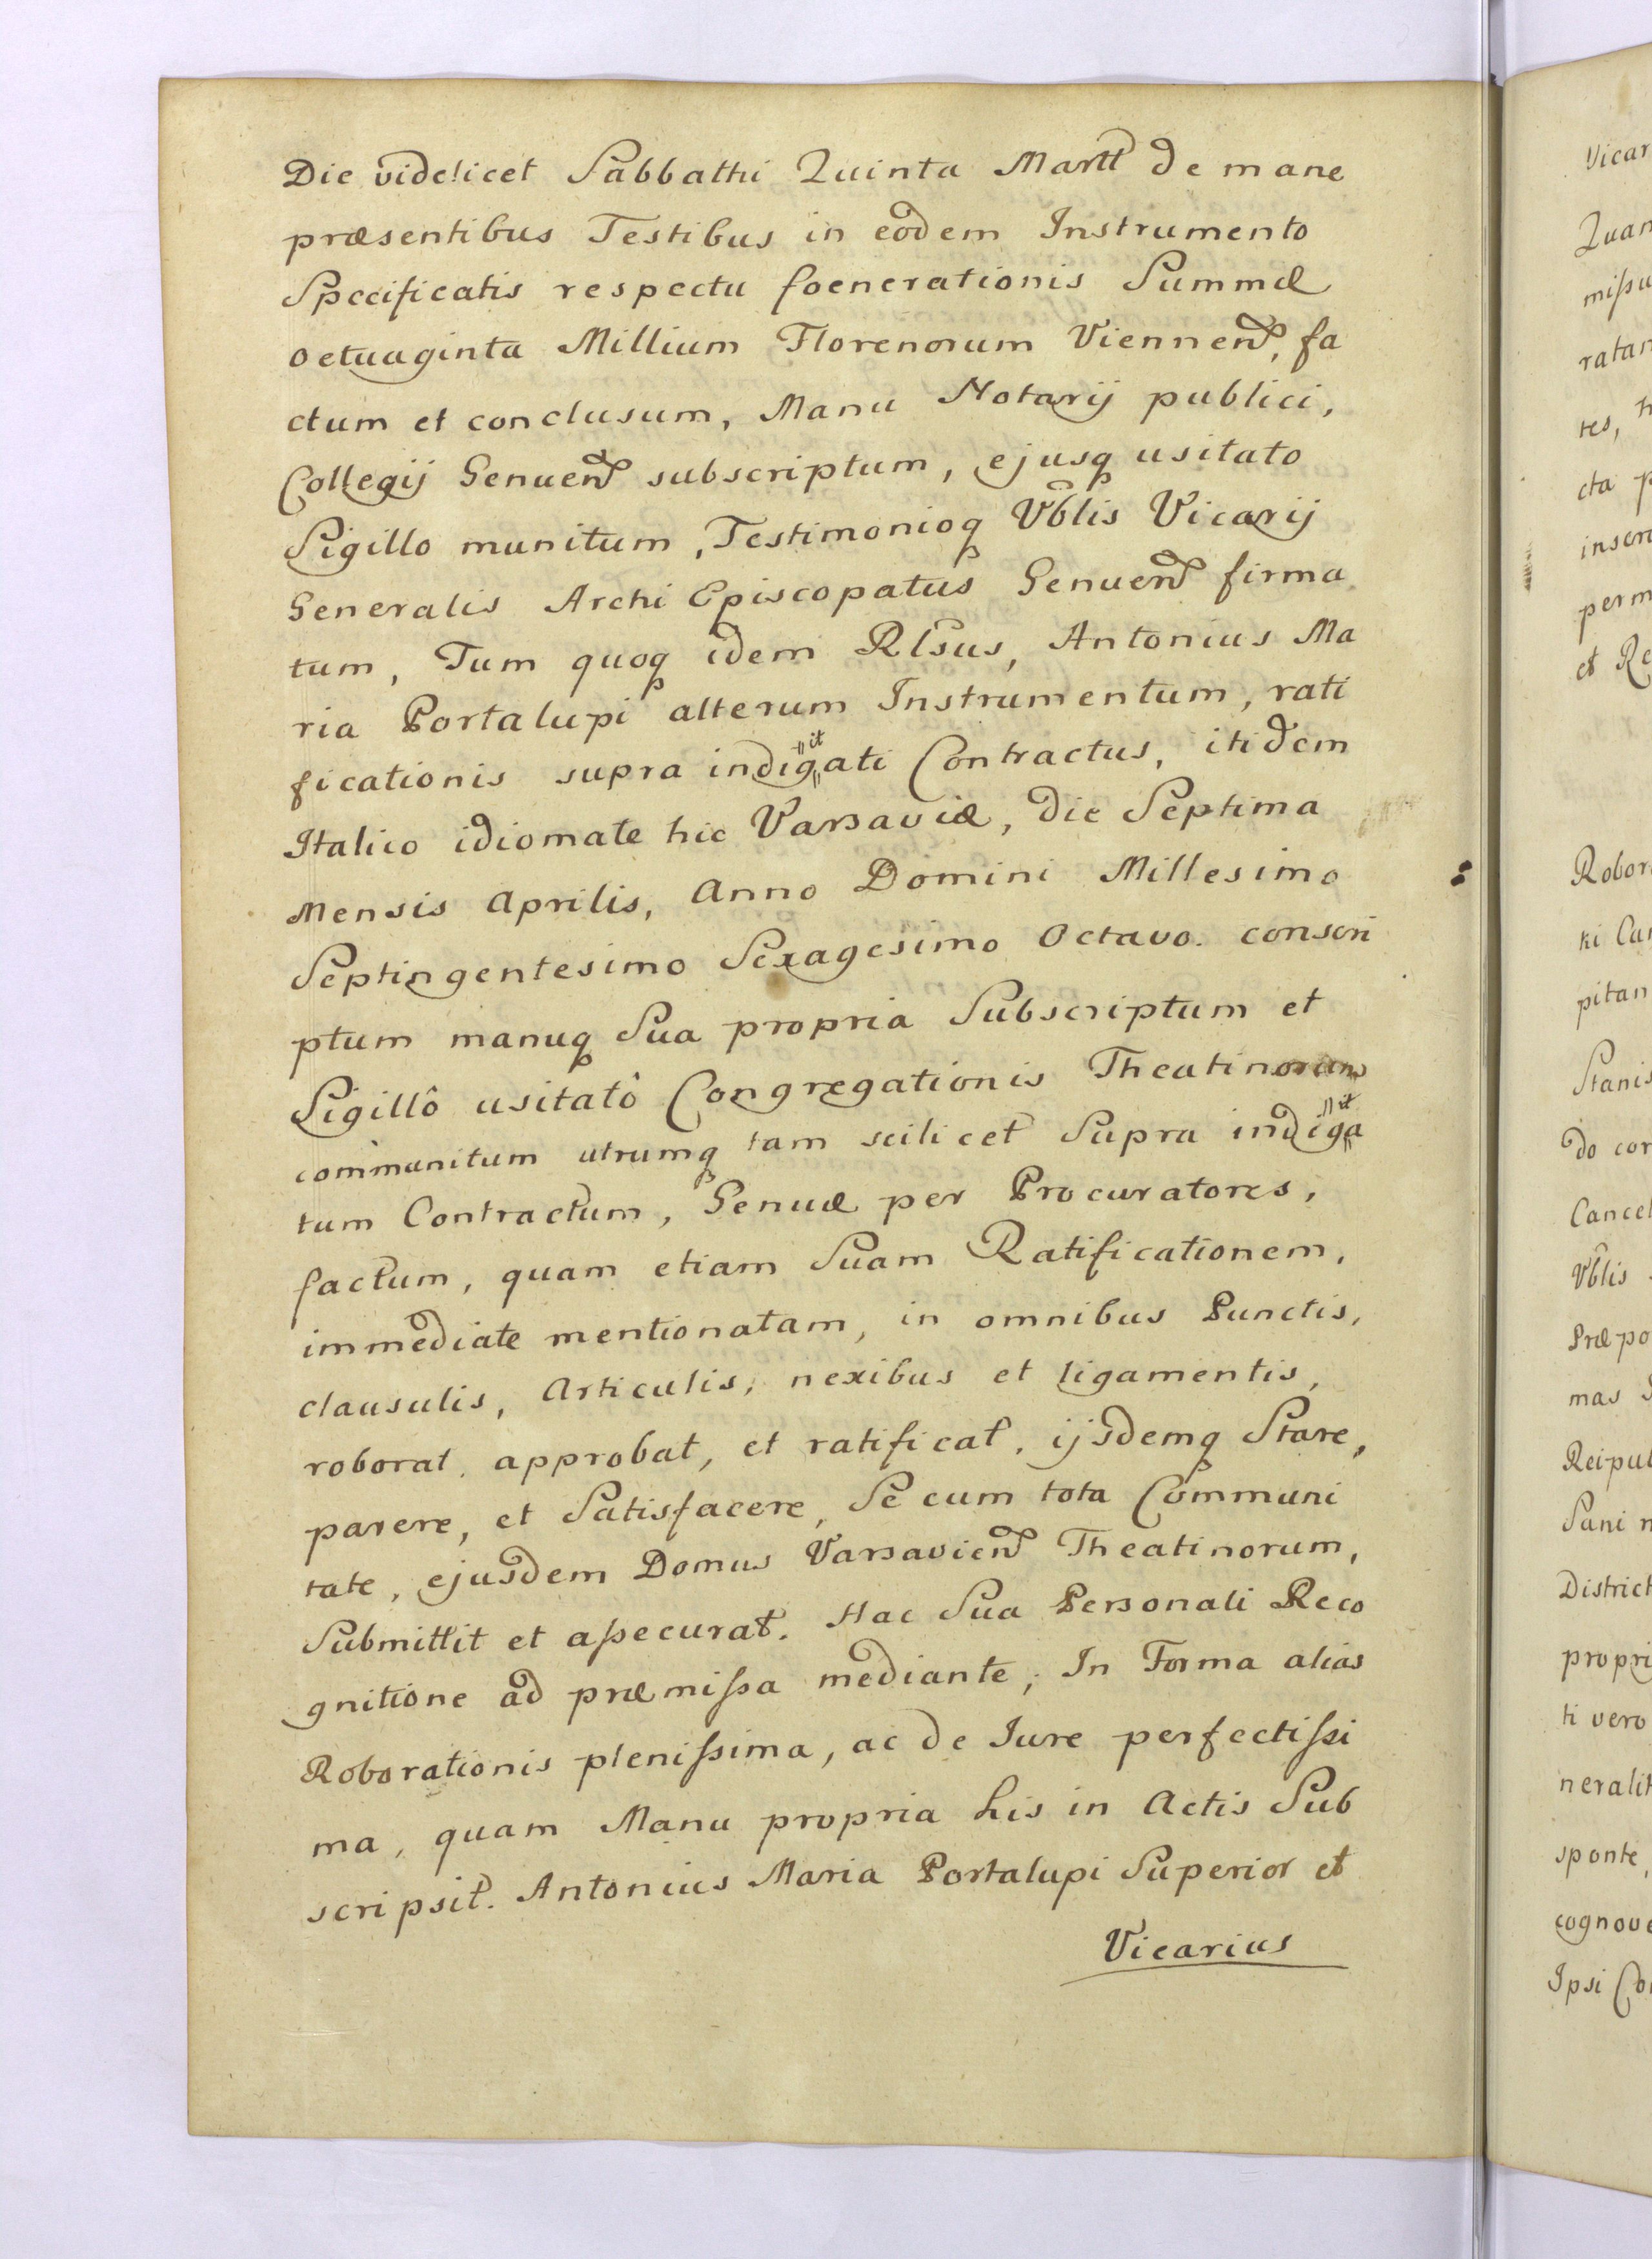 Die videlicet Sabbathi Quinta Martt de mane
præsentibus Testibus in eodem Instrumento
Specificatis respectu foenerationis Summæ
octuaginta Millium Florenorum Viennen, fa
ctum et conclusum, Manu Notarij publici,
Collegij Genuen subscriptum, ejusq usitato
Sigillo munitum, Testimonioq Vblis Vicarij
Generalis Archi Episcopatus Genuen firma
tum, Tum quoq idem Rlsus, Antonius Ma
ria Portalupi alterum Instrumentum, rati
ficationis supra indigitati Contractus, itidem
Italico idiomate hic Varsaviæ, die Septima
Mensis Aprilis, Anno Domini Millesimo
Septingentesimo Sexagesimo Octavo. conscri
ptum manuq Sua propria Subscriptum et
Sigillô usitatô Congregationis Theatinorum
communitum utrumq tam scilicet Supra indigita
tum Contractum, Genuæ per Procuratores,
factum, quam etiam Suam Ratificationem,
immediate mentionatam, in omnibus Punctis,
clausulis, Articulis, nexibus et ligamentis,
roborat, approbat, et ratificat, ijsdemq Stare,
parere, et Satisfacere, Se cum tota Communi
tate, ejusdem Domus Varsavien Theatinorum,
Submittit et aſsecurat. Hac Sua Personali Reco
gnitione ad præmiſsa mediante, In Forma alias
Roborationis pleniſsima, ac de Iure perfectiſsi
ma, quam Manu propria his in Actis Sub
scripsit. Antonius Maria Portalupi Superior et
Vicarius
Vicar
Quan
miſsu
ratan
tes, t
cta p
inser
perm
et Re
Robor
ki Can
pitan
Stanis
do cor
Cancel
Vblis
Præpo
mas S
Reipub
Sani n
District
propri
ti vero
neralit
sponte,
cognove
Ipsi Con